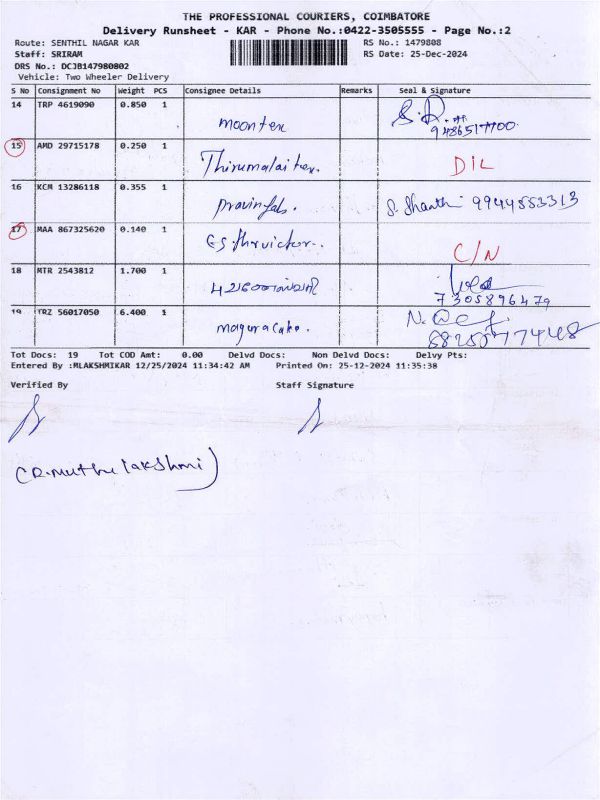 THE PROFESSIONAL COURIERS, COIMBATORE
Delivery Runsheet - KAR - Phone No.:0422-3505555 - Page No.:2
Route: SENTHIL NAGAR KAR RS No.: 1479808
Staff: SRIRAM RS Date: 25-Dec-2024
DRS No.: DCJB147980802
Vehicle: Two Wheeler Delivery
S No Consignment No Weight PCS Consignee Details Remarks Seal & Signature
14 TRP 4619090 0.850 1 moontex
15 AMD 29715178 0.250 1 Thirumalai tex. D/L
16 KCM 13286118 0.355 1 pravin fab. S. Shanthi 9944553313
17 MAA 867325620 0.140 1 C/N
18 MTR 2543812 1.700 1 7305896479
19 TRZ 56017050 6.400 1
Tot Docs: 19 Tot COD Amt: 0.00 Delvd Docs: Non Delvd Docs: Delvy Pts:
Entered By :MLAKSHMIKAR 12/25/2024 11:34:42 AM Printed On: 25-12-2024 11:35:38
Verified By Staff Signature
(R. muthu lakshmi)